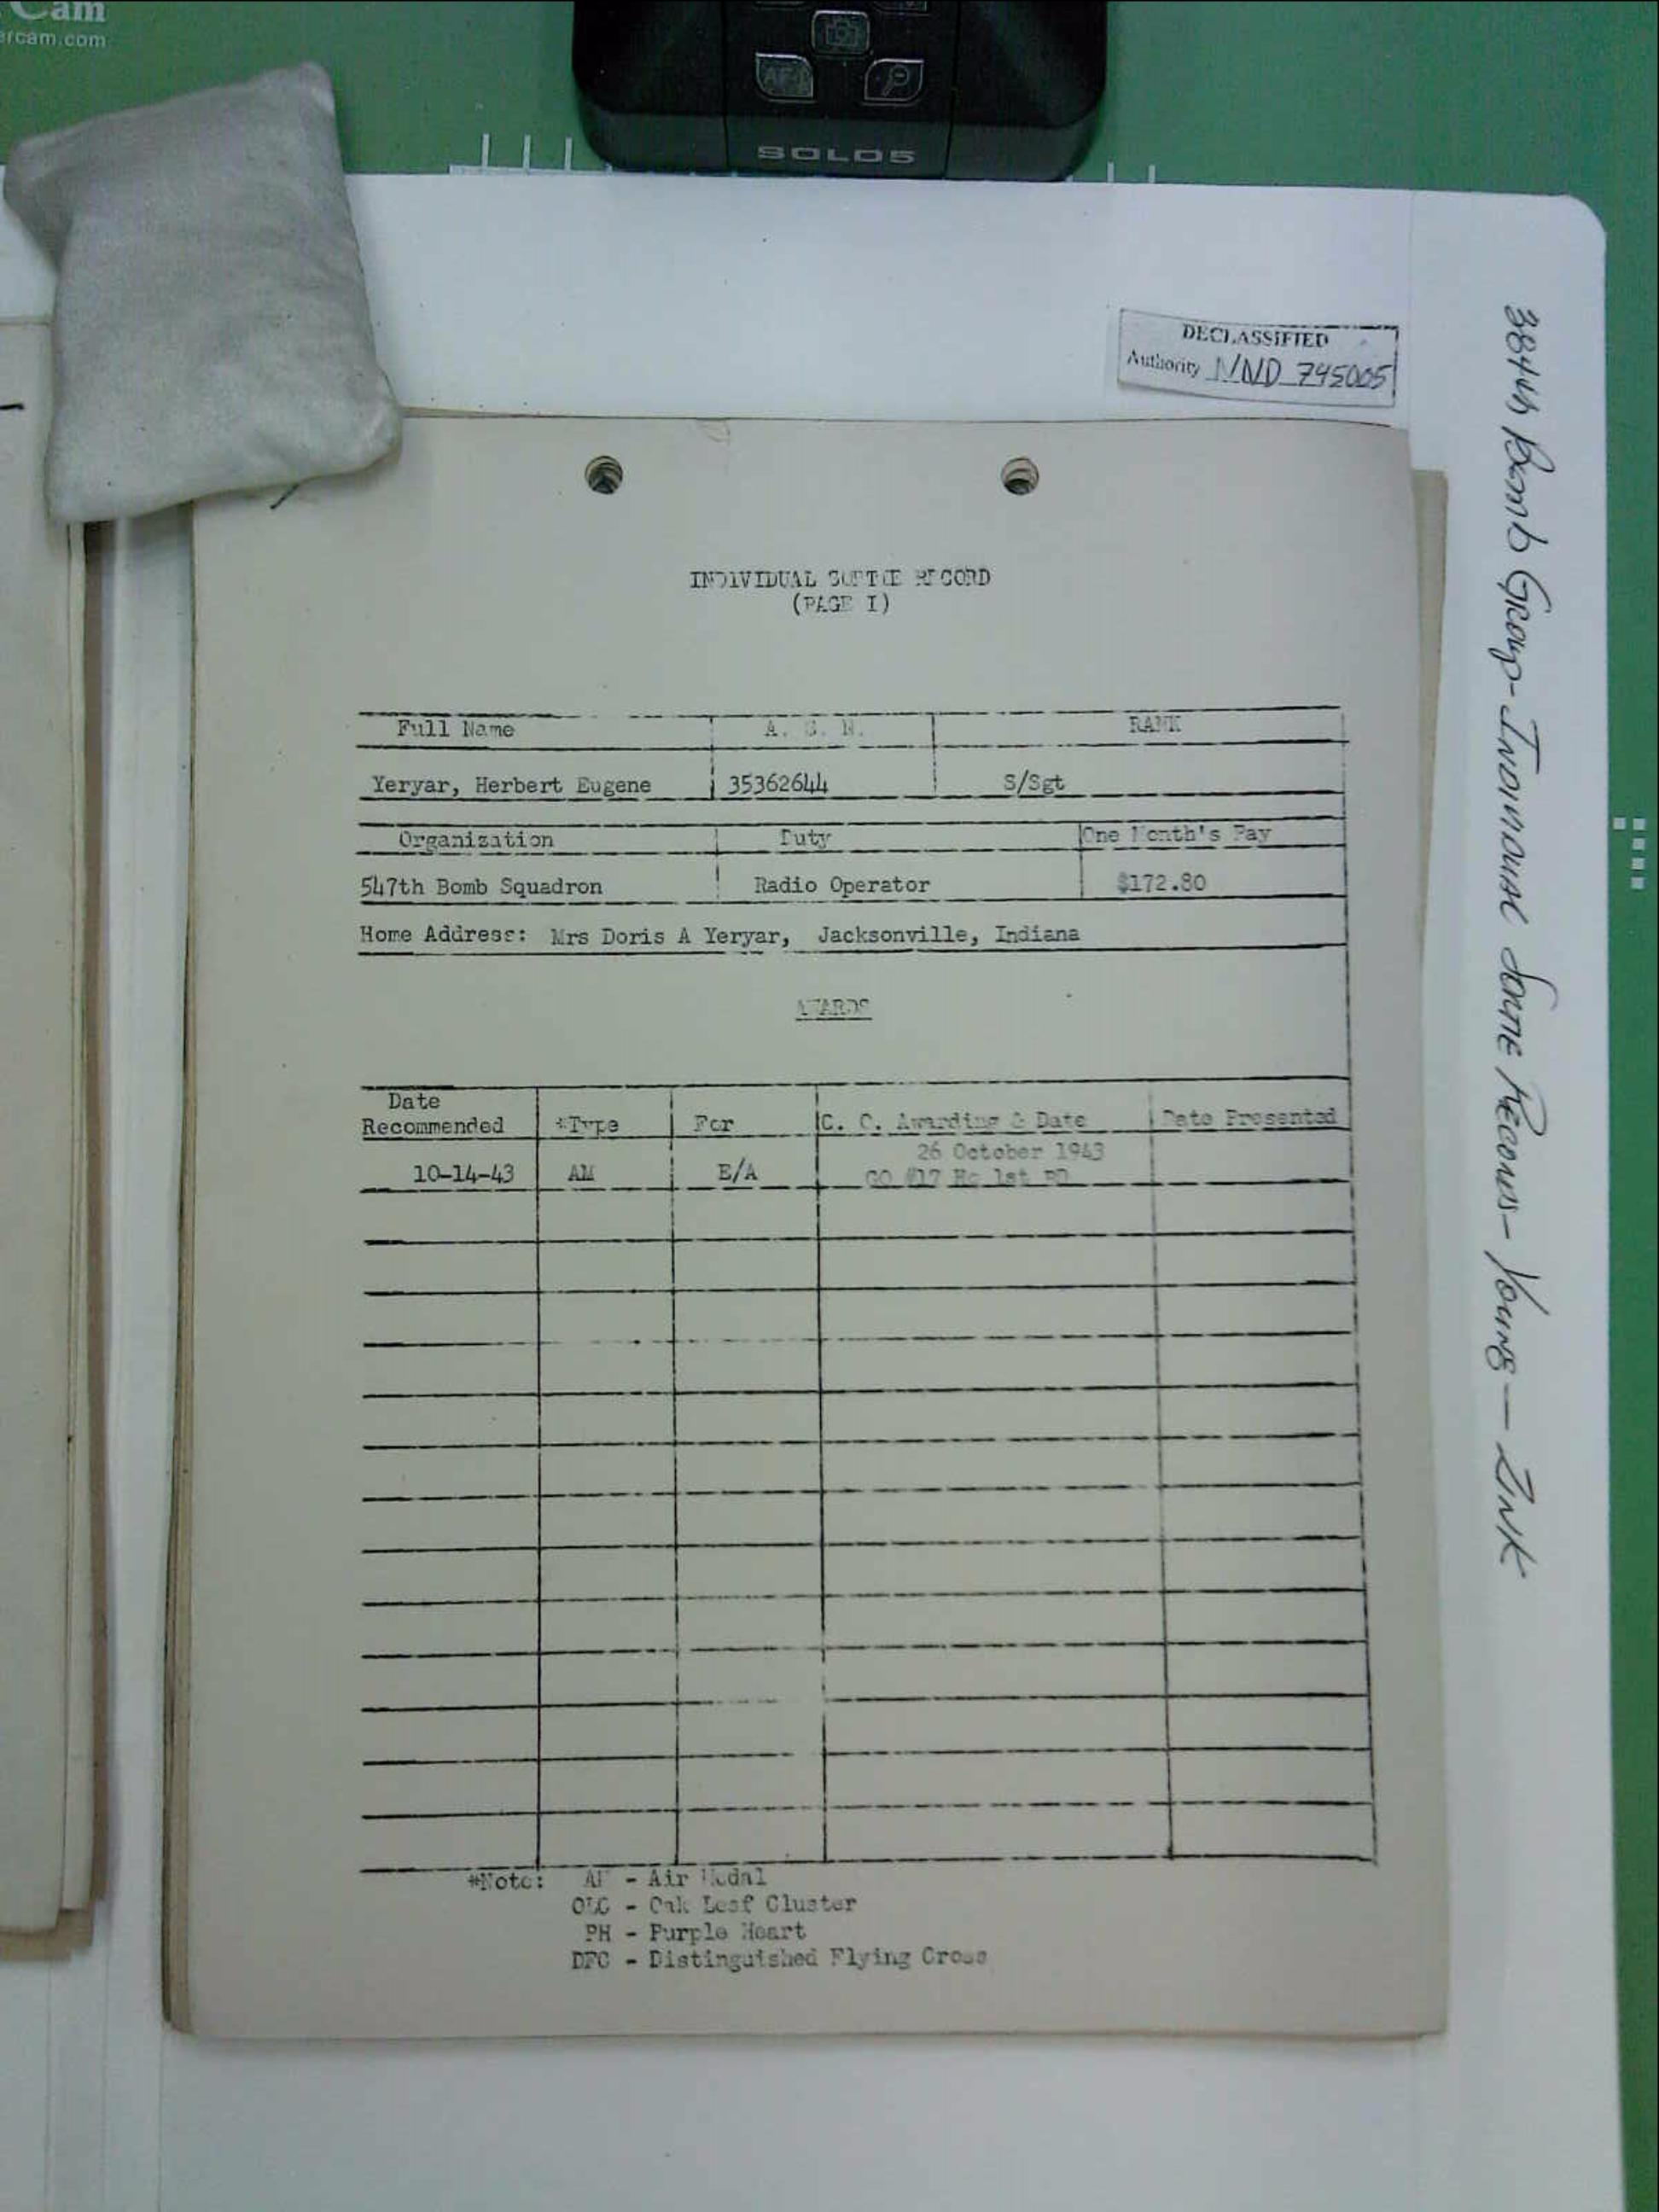 Cam
ercam.com
AF
SOLO5
DECLASSIFIED
Authority NND 745005
384th Bomb Group - Individual Sortie Records - Young — Zink
INDIVIDUAL SORTIE RECORD
(PAGE I)
Full Name A. S. N. RANK
Yeryar, Herbert Eugene 35362644 S/Sgt
Organization Duty One Month's Pay
547th Bomb Squadron Radio Operator $172.80
Home Address: Mrs Doris A Yeryar, Jacksonville, Indiana
AWARDS
Date
Recommended *Type For C. O. Awarding & Date Date Presented
26 October 1943
10-14-43 AM E/A GO #17 Hq 1st BD
*Note: AM - Air Medal
OLC - Oak Leaf Cluster
PH - Purple Heart
DFC - Distinguished Flying Cross